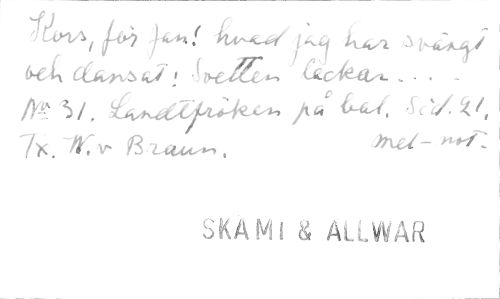 Kors, för fan! hvad jag har svängt
och dansat! Svetten lackar....
No 31. Landtfröken på bal. Sid. 21.
Tx. W. v Braun. mel-not.
SKÄMT & ALLWAR